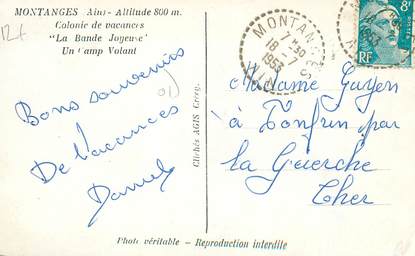 MONTANGES Ain - Altitude 800 m.
Colonie de vacances
"La Bande Joyeuse"
Un Camp Volant
Bons souvenirs
De Vacances
Daniel
Clichés AGIS Crécy.
MONTANGES
AIN
7-30
18-8
1953
8F
RF
POSTES
Madame Guyon
à par
la Guerche
Cher
Photo véritable - Reproduction interdite